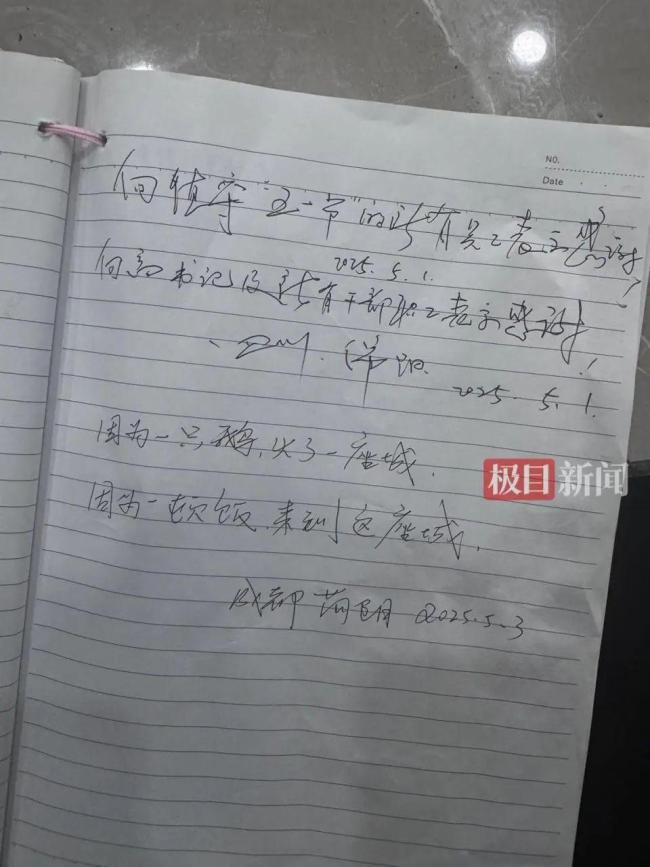 NO.
Date
向值守"五一节"的所有员工表示感谢!
2025.5.1.
向高书记及所有干部职工表示感谢!
、四川.
2025.5.1.
因为一只鹅,火了一座城.
极目新闻
因为一顿饭,来到这座城.
成都 2025.5.3